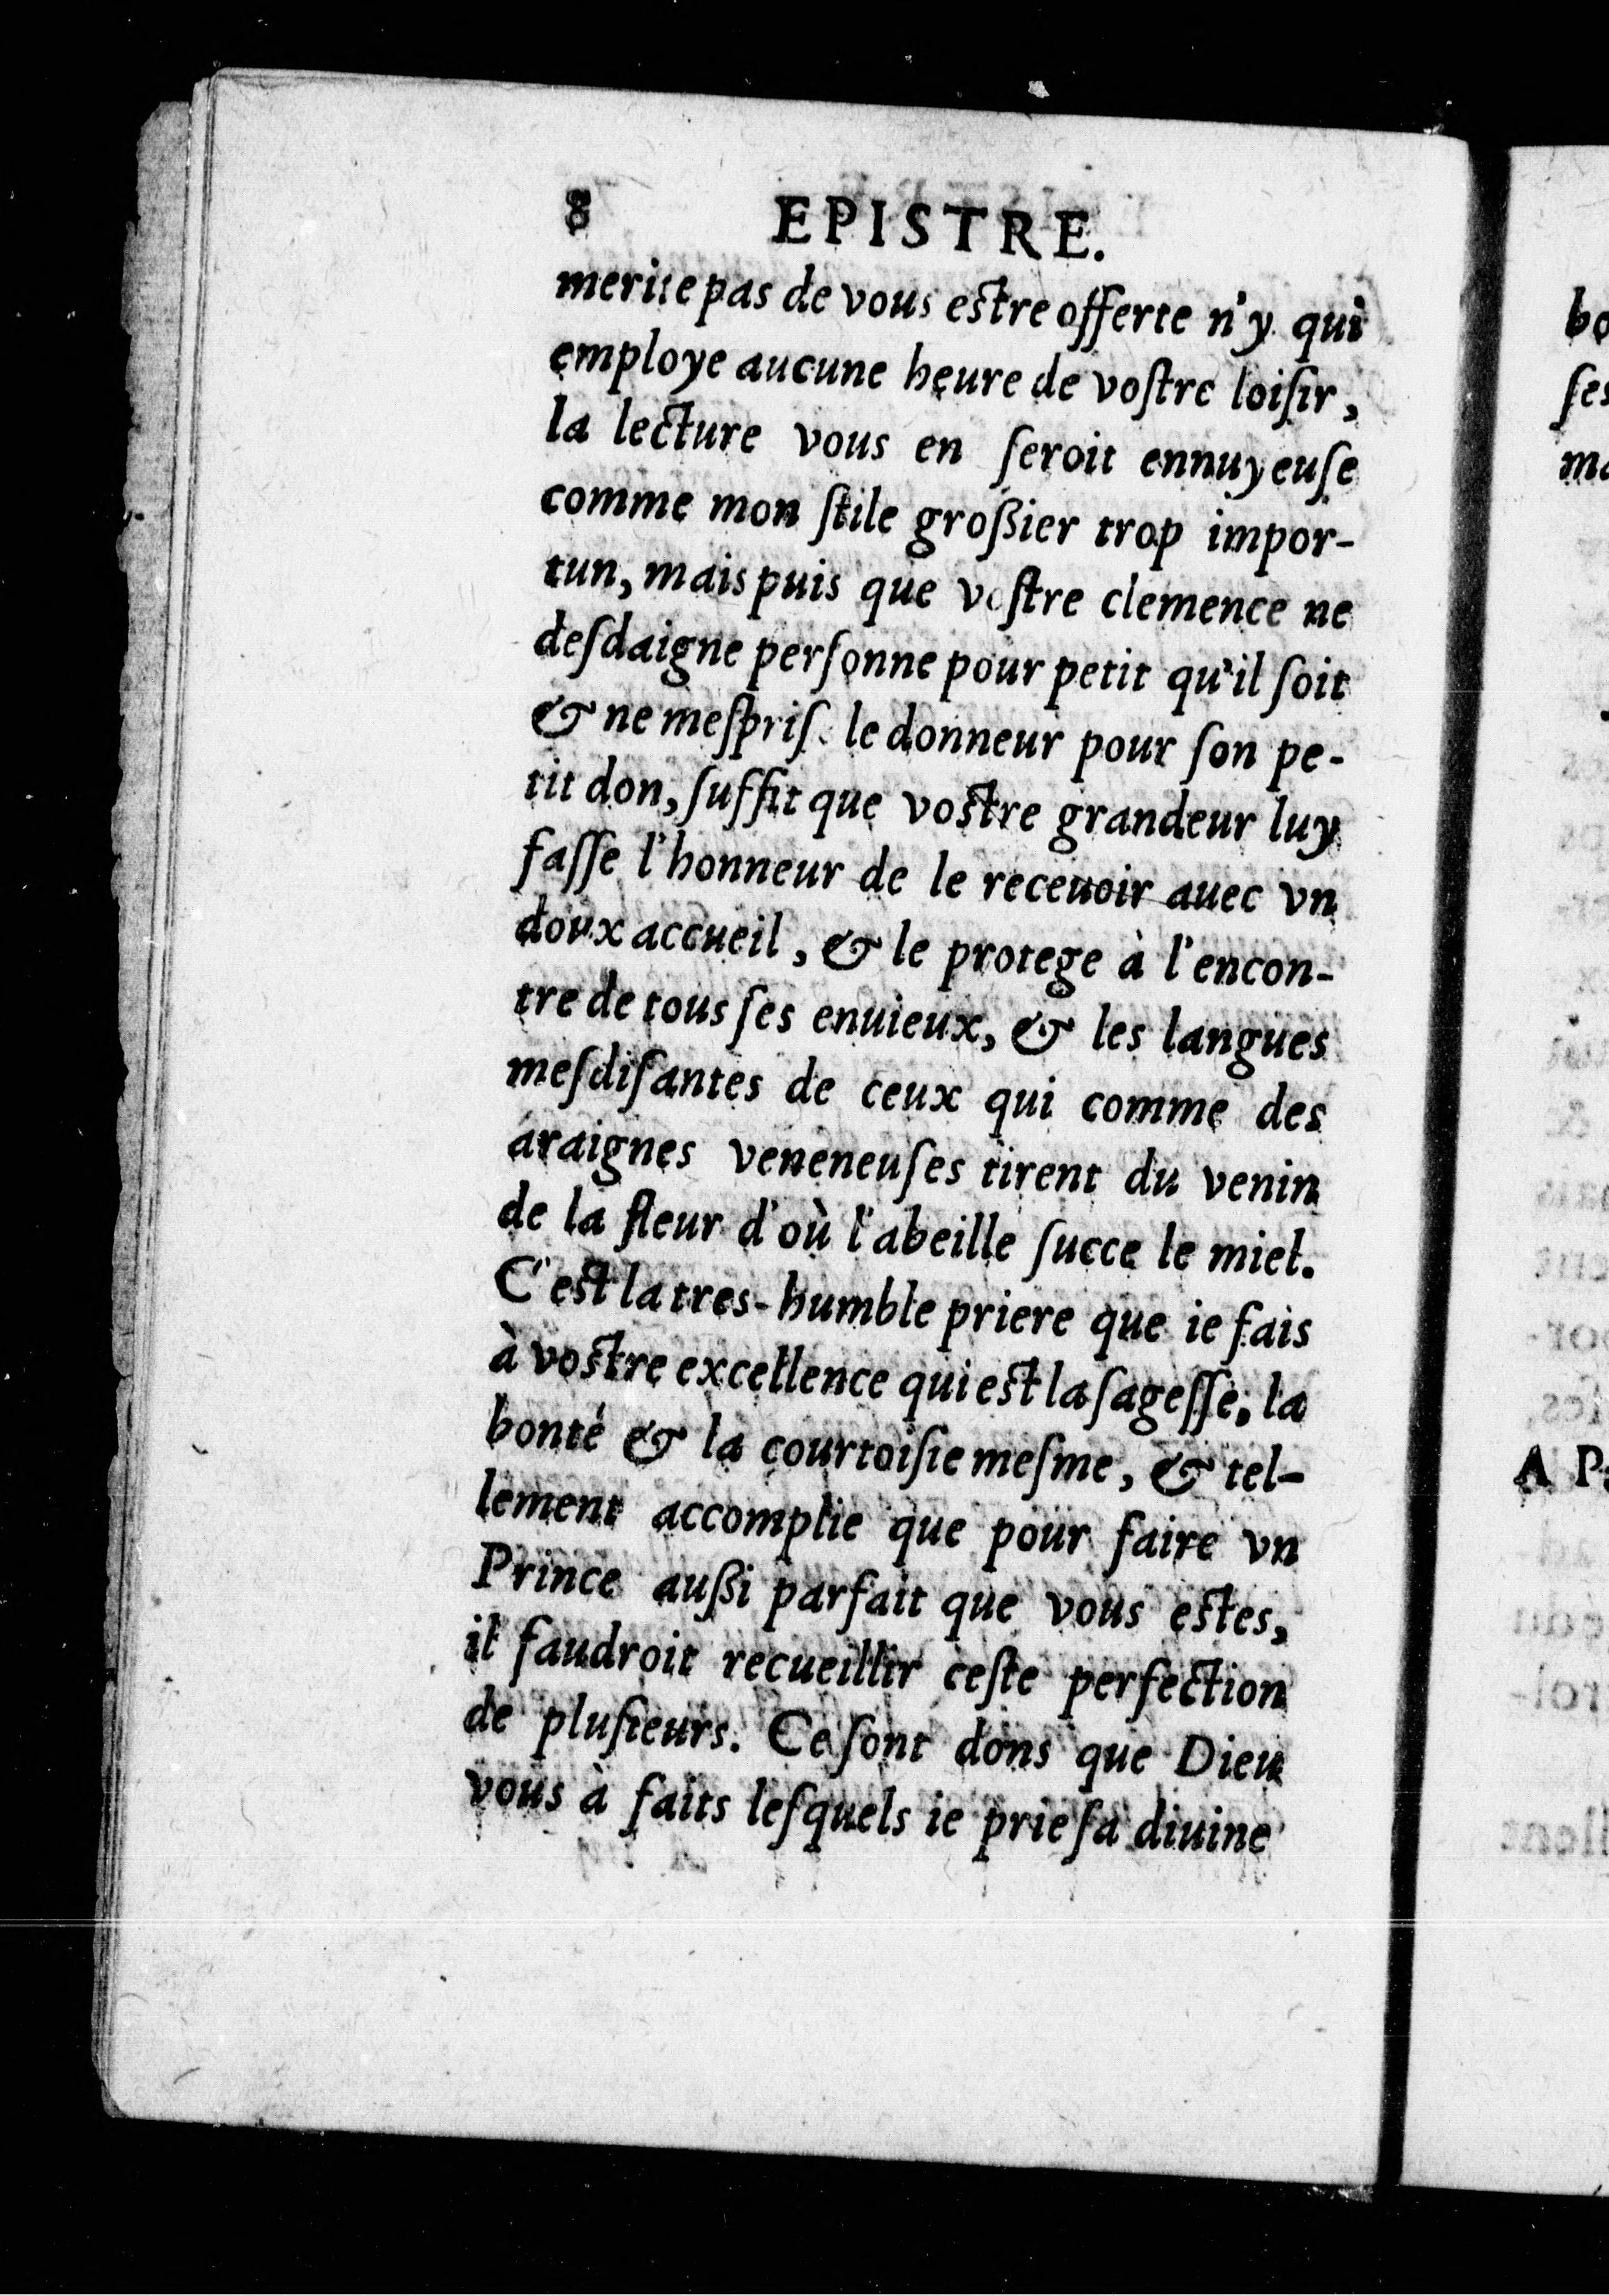 8 EPISTRE.
merite pas de vous estre offerte n'y qui
employe aucune heure de voſtre loiſir,
la lecture vous en ſeroit ennuyeuſe
comme mon ſtile großier trop impor-
tun, mais puis que voſtre clemence ne
deſdaigne perſonne pour petit qu'il ſoit
& ne meſpriſ le donneur pour ſon pe-
tit don, ſuffit que vostre grandeur luy
faſſe l'honneur de le receuoir auec vn
doux accueil, & le protege à l'encon-
tre de tous ſes enuieux, & les langues
meſdiſantes de ceux qui comme des
araignes veneneuſes tirent du venin
de la fleur d'où l'abeille ſucce le miel.
C'est la tres-humble priere que ie fais
à vostre excellence qui est la ſageſſe, la
bonté & la courtoiſie meſme, & tel-
lement accomplie que pour faire vn
Prince außi parfait que vous estes,
il faudroit recueillir ceſte perfection
de pluſieurs. Ce ſont dons que Dieu
vous à faits leſquels ie prie ſa diuine
bo
ſes
ma
A Pa